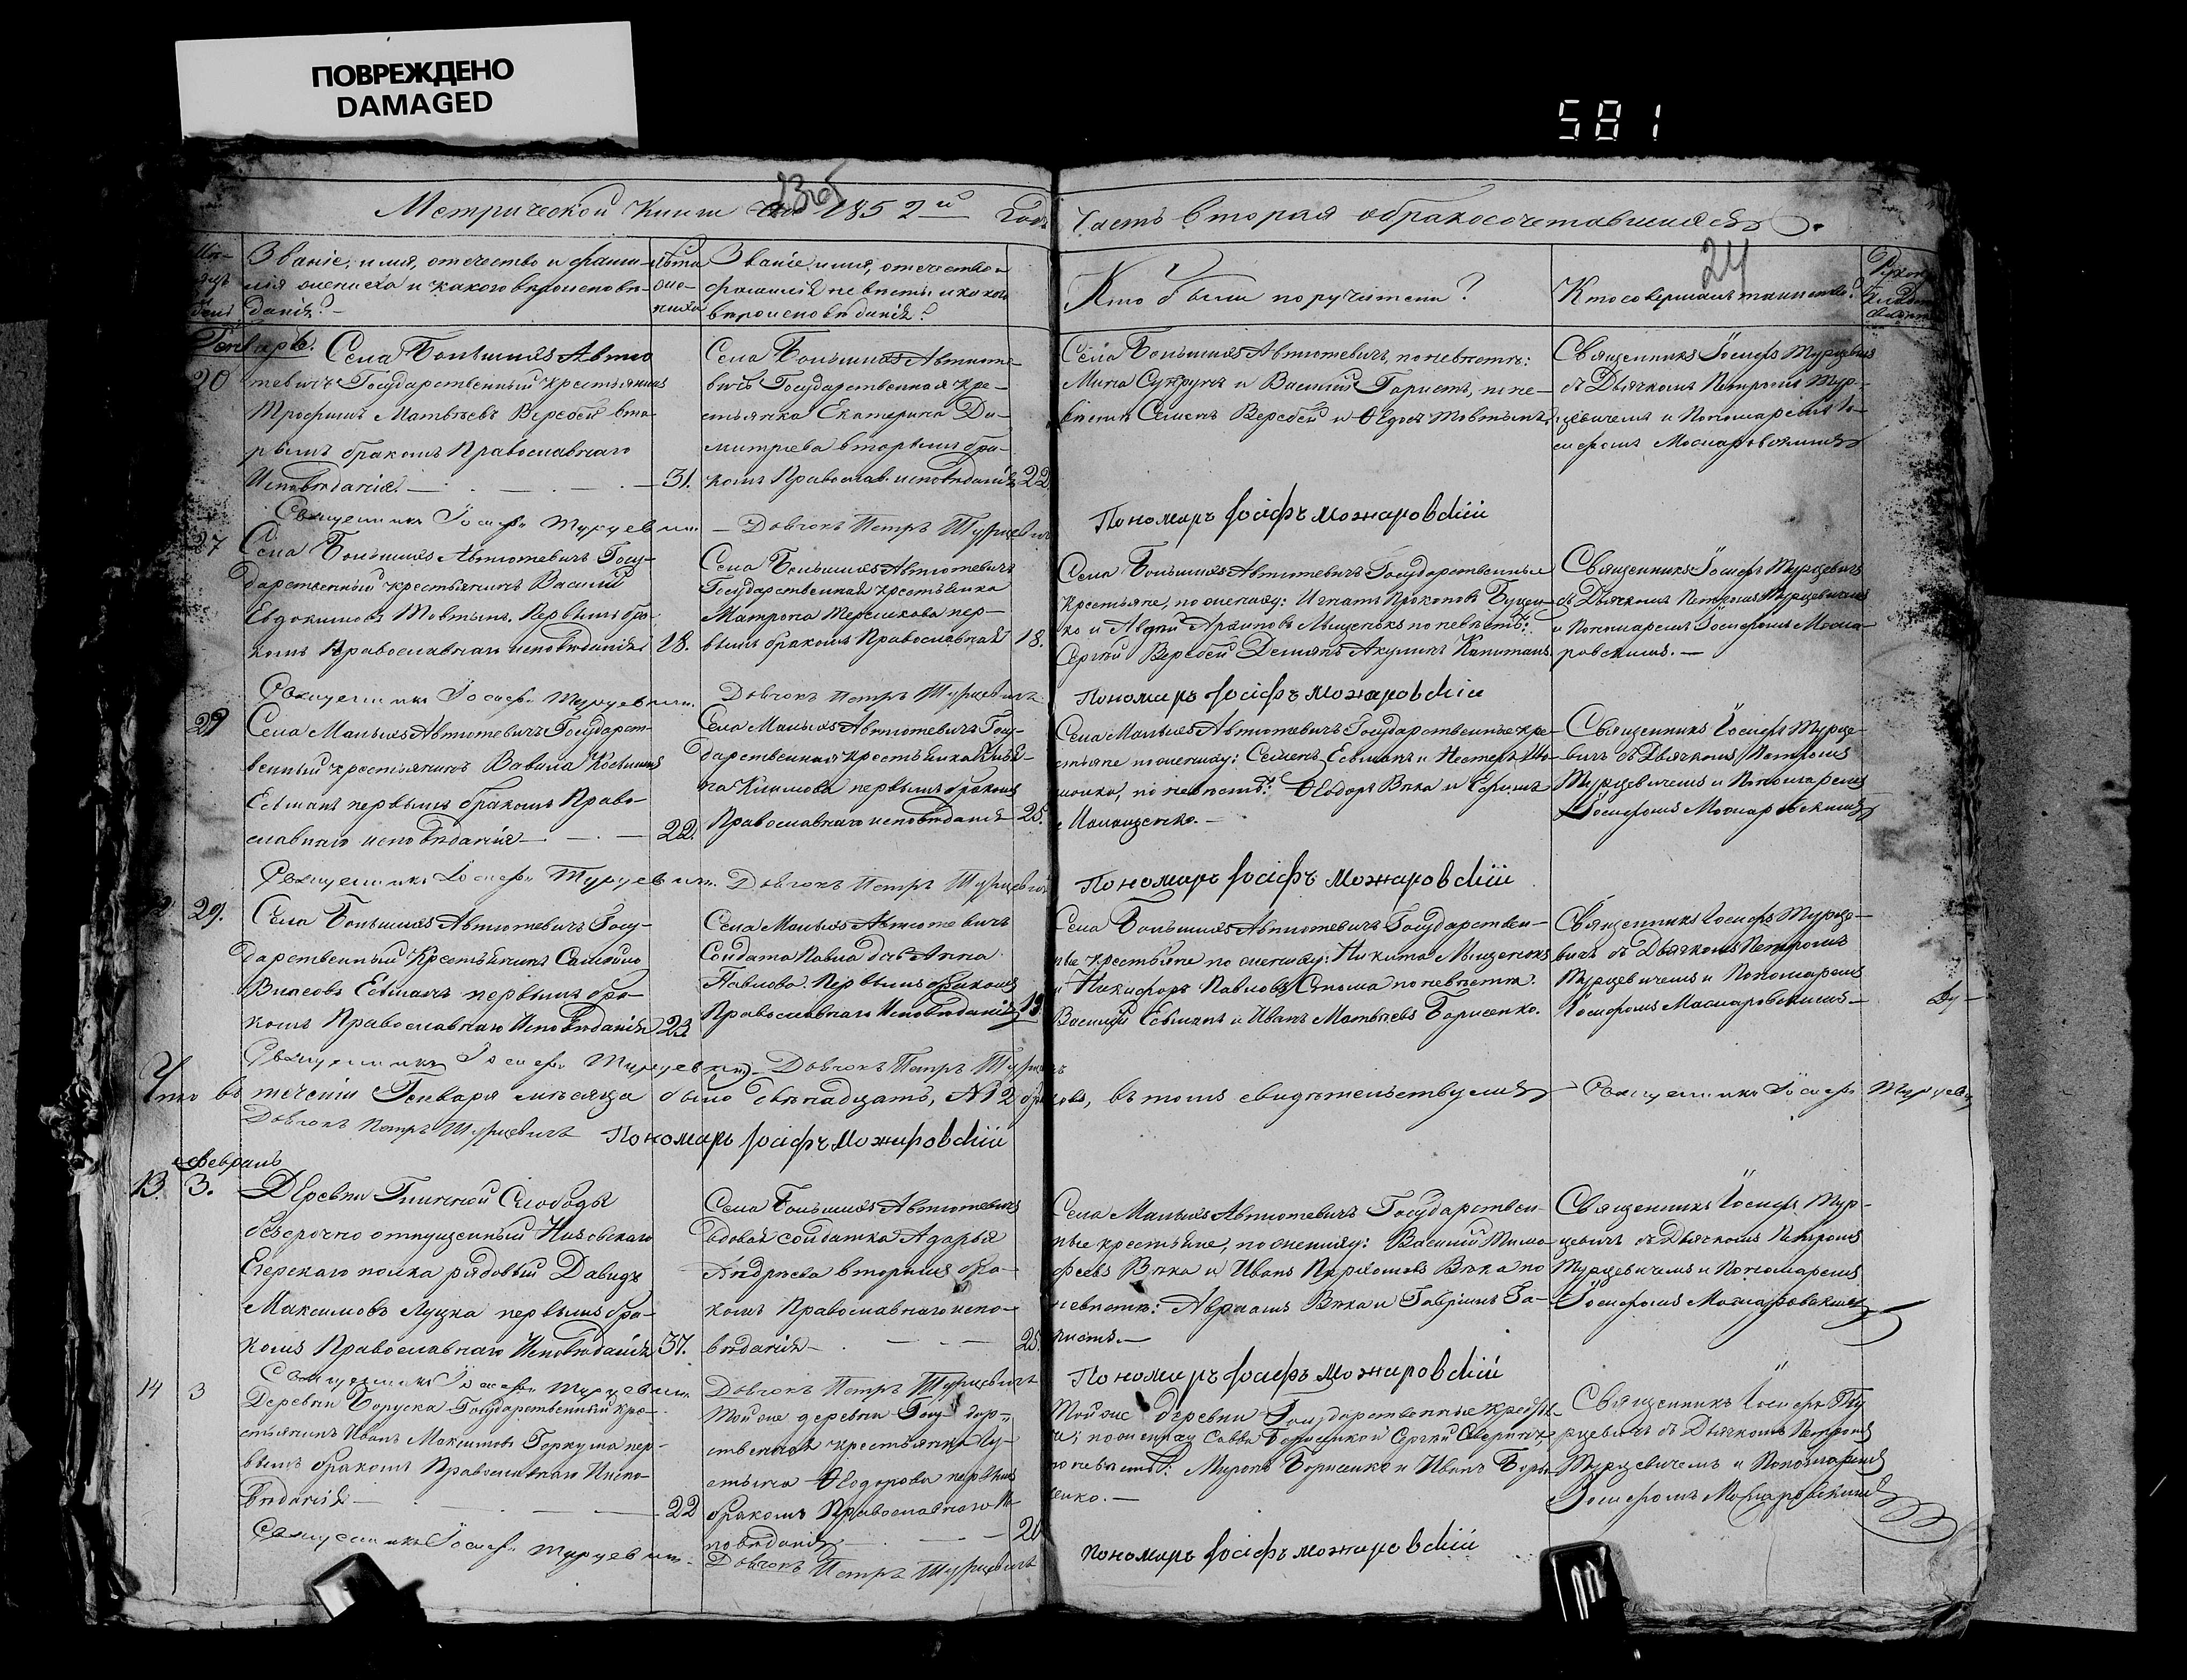 ПОВРЕЖДЕНО
DAMAGED
581
Метрической Книги 1852й Года
Часть вторая о бракосочетавшихся
24
Званіе, имя, отечество и фами-
лія жениха и какого вѣроисповѣ-
данія?
Лѣта
же-
ниха
Званіе, имя, отечество и
фамилія невѣсты и какого
вѣроисповѣданія?
Кто были поручители?
Кто совершалъ таинство?
Генварь.
20
Села Большихъ Автю-
тевичъ Государственный крестьянинъ
Трофимъ Матвѣевъ Веребей вто-
рымъ бракомъ Православнаго
Исповѣданія.
31.
Села Большихъ Автюте-
вичъ Государственная кре-
стьянка Екатерина Ди-
митріева вторымъ бра-
комъ Православ. исповѣданія
22
Села Большихъ Автютевичъ, по невѣстѣ:
Мина Супрунъ и Василій Гористъ, по же-
Семенъ Веребей и Ѳедосъ Товтынъ
Священникъ Іосифъ Турцевичъ
съ Дьячкомъ Петромъ Тур-
цевичемъ и Пономаремъ Іо-
сифомъМожаровскимъ
Священникъ Іосифъ Турцевичъ
Дьячокъ Петръ Турцевичъ
Пономарь Іосифъ Можаровскій
27
Села Большихъ Автютевичъ Госу-
дарственный крестьянинъ Василій
Евдокимовъ Товтынъ. Первымъ бра-
комъ Православнаго исповѣданія
18.
Села Большихъ Автютевичъ
Государственная крестьянка
Матрона Терешкова пер-
вымъ бракомъ Православнаго
18.
Села Большихъ Автютевичъ Государственные
Крестьяне, по жениху: Игнатъ Прокоповъ Буцен-
ко и Авдей Архиповъ Мыщенокъ по невѣстѣ:
Сергѣй Веребей Демьянъ Акулинъ
Священникъ Іосифъ Турцевичъ
съ Дьячкомъ Петромъ Турцевичемъ
и Пономаремъ Іосифомъ Можа-
ровскимъ.
Священникъ Іосифъ Турцевичъ.
Дьячокъ Петръ Турцевичъ
Пономарь Іосифъ Можаровскій
29
Села Малыхъ Автютевичъ Государст-
венный крестьянинъ Вавила
Евтанъ первымъ бракомъ Право-
славнаго исповѣданія
22.
Села Малыхъ Автютевичъ Госу-
дарственная крестьянка
Климова первымъ бракомъ
Православнаго исповѣданія
25.
Села Малыхъ Автютевичъ Государственные кре-
стьяне по жениху: Семенъ Евтанъ и Нестеръ
по невѣстѣ: Ѳеодоръ Вѣка и Ефимъ
Священникъ Іосифъ Турце-
вичъ съ Дьячкомъ Петромъ
Турцевичемъ и Пономаремъ
Іосифомъ Можаровскимъ
Священникъ Іосифъ Турцевичъ.
Дьячокъ Петръ Турцевичъ
Пономарь Іосифъ Можаровскій
29.
Села Большихъ Автютевичъ Госу-
дарственный Крестьянинъ
Власовъ Евтанъ первымъ бра-
комъ Православнаго Исповѣданія
23
Села Малыхъ Автютевичъ
Солдата Павла дочь Анна
Павлова. Первымъ бракомъ
Православнаго Исповѣданія
Села Большихъ Автютевичъ Государствен-
ные крестьяне по жениху: Никита Мыщенокъ
и Никифоръ Павловъ по невѣстѣ:
Василій Евтанъ и Иванъ Матвѣевъ Борисенко.
Священникъ Іосифъ Турце-
вичъ съ Дьячкомъ Петромъ
Турцевичемъ и Пономаремъ
Іосифомъ Можаровскимъ
Священникъ Іосифъ Турцевичъ
Дьячокъ Петръ Турцевичъ
Что въ теченіи Генваря мѣсяца было двѣнадцать, №12 браковъ, въ томъ свидѣтельствуемъ
Священникъ Іосифъ Турцевичъ
Дьячокъ Петръ Турцевичъ
Пономарь Іосифъ Можаровскій
Февраль
13. 3.
Деревни Глинной Слободы
безсрочно отпущенный
Егерскаго полка рядовый Давидъ
Максимовъ Луцка первымъ бра-
комъ Православнаго Исповѣданія
37.
Села Большихъ Автютевичъ
вдовая солдатка Адарья
Андреева вторымъ бра-
комъ Православнаго испо-
вѣданія
25.
Села Малыхъ Автютевичъ Государствен-
ные крестьяне, по жениху: Василій Тимо-
феевъ Вѣка и Иванъ Вѣка по
невѣстѣ: Авраамъ Вѣка и Гавріилъ Го-
ристъ.
Священникъ Іосифъ Тур-
цевичъ съ Дьячкомъ Петромъ
Турцевичемъ и Пономаремъ
Іосифомъ Можаровскимъ
Священникъ Іосифъ Турцевичъ
Дьячокъ Петръ Турцевичъ
Пономарь Іосифъ Можаровскій
14 3
Деревни Боруска Государственный кре-
стьянинъ Иванъ Максимовъ пер-
вымъ бракомъ Православнаго Испо-
вѣданія
22
Той же деревни Государ-
ственная крестьянка Іу-
стина Ѳеодорова первымъ
бракомъ Православнаго Ис-
повѣданія
20
Той же деревни Государственные крестья-
не; по жениху Савва и Сергѣй
по невѣстѣ: Миронъ Борисенко и Иванъ Борис-
енко.
Священникъ Іосифъ Ту
рцевичъ съ Дьячкомъ Петромъ
Турцевичемъ и Пономаремъ
Іосифомъ Можаровскимъ
Священникъ Іосифъ Турцевичъ.
Дьячокъ Петръ Турцевичъ
Пономарь Іосифъ Можаровскій